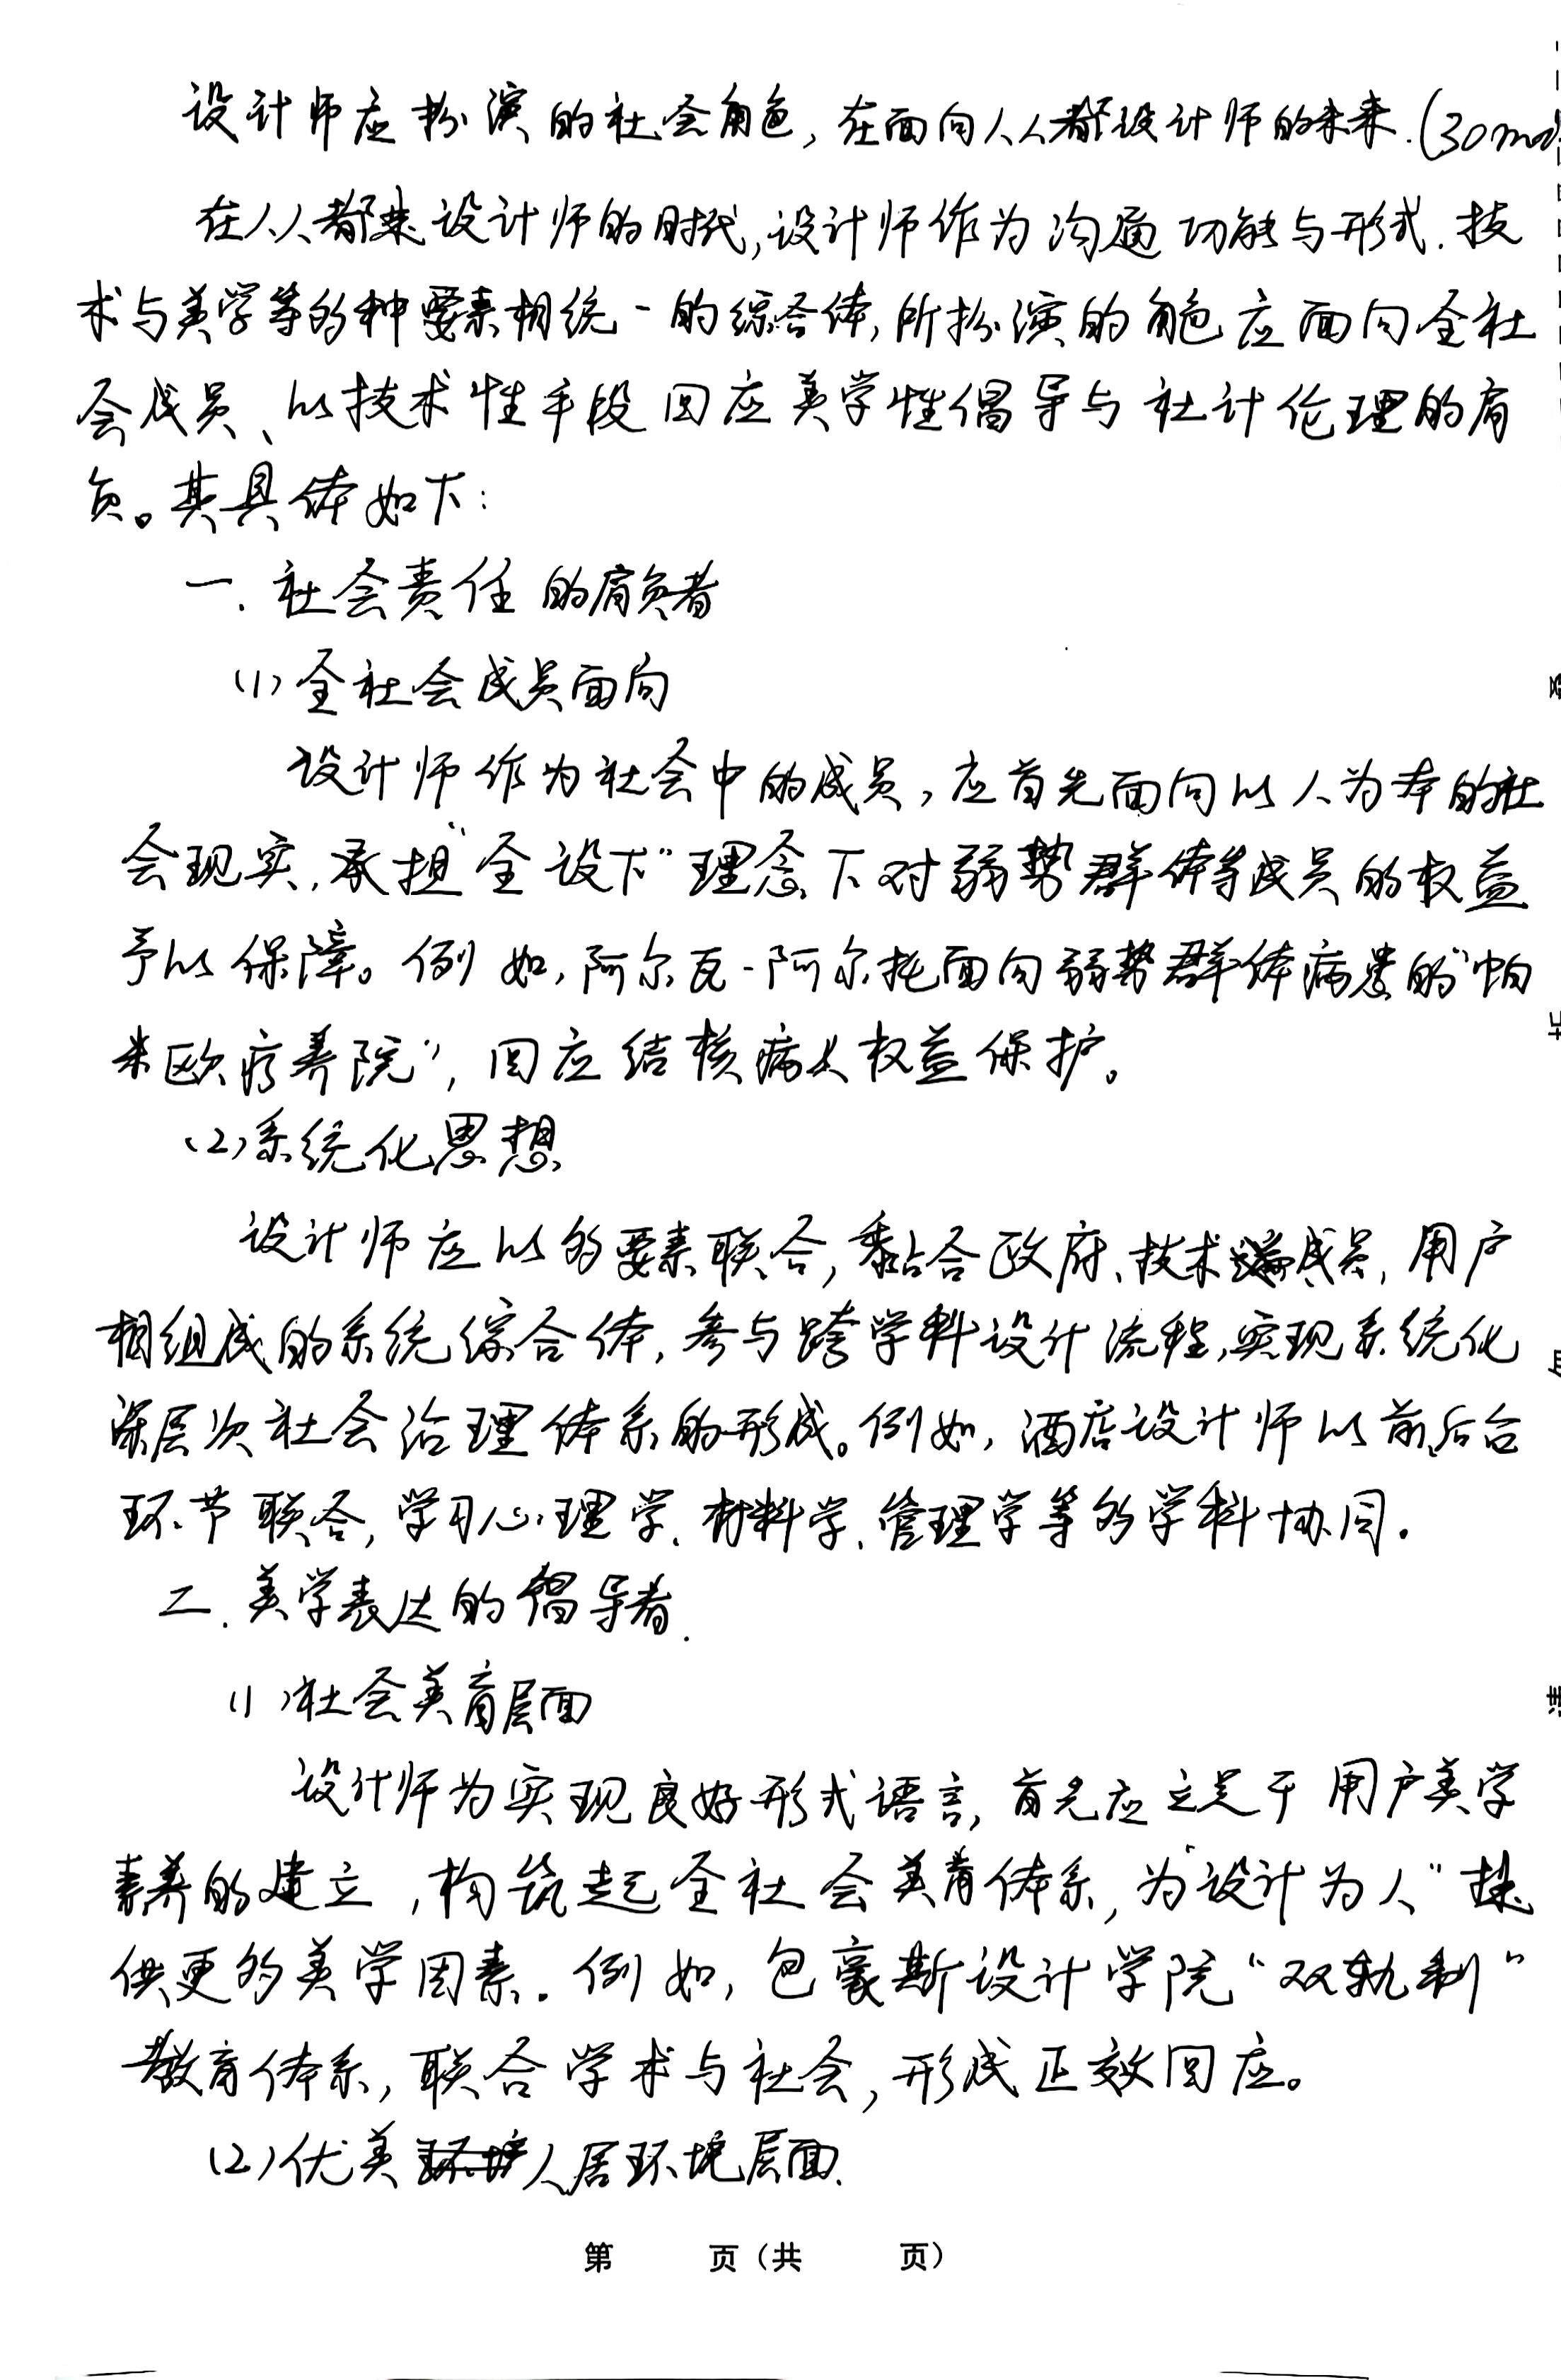 设计师应扮演的社会角色，在面向人人都设计师的未来.(30
在人人都是设计师的时代,设计师作为沟通功能与形式.技
术与美学等多种要素相统一的综合体,所扮演的角色应面向全社
会成员、以技术性手段回应美学性倡导与社计伦理的肩
负。其具体如下：
一.社会责任的肩负者
(1)全社会成员面向
设计师作为社会中的成员，应首先面向以人为本的社
会现实,承担“全设下”理念下对弱势群体等成员的权益
予以保障。例如,阿尔瓦-阿尔托面向弱势群体病患的“帕
米欧疗养院”,回应结核病人权益保护。
(2)系统化思想
设计师应以多要素联合,黏合政府、技术成员,用户
相组成的系统综合体,参与跨学科设计流程,实现系统化
深层次社会治理体系的形成。例如,酒店设计师以前后台
环节联合,学习心理学、材料学、管理学等多学科协同.
二.美学表达的倡导者.
(1)社会美育层面
设计师为实现良好形式语言,首先应立足于用户美学
素养的建立,构筑起全社会美育体系,为“设计为人”提
供更多美学因素.例如,包豪斯设计学院“双轨制”
教育体系,联合学术与社会,形成正效回应。
(2)优美人居环境层面.
第 页（共 页）